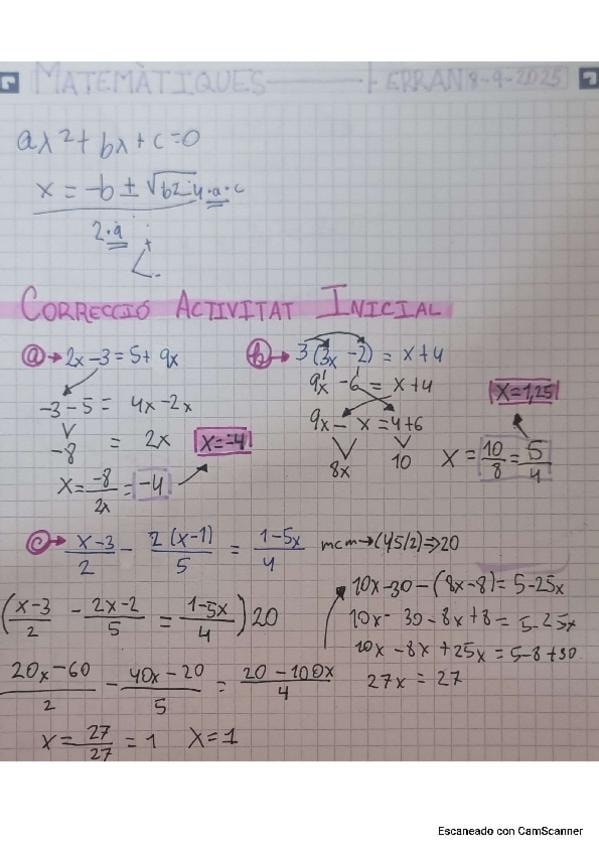 MATEMÀTIQUES FERRAN 8-9-2025
ax²+bx+c=0
x = -b ± √b2-4·a·c
2·a
+
-
CORRECCIÓ ACTIVITAT INICIAL
a → 2x-3=5+9x
-3-5 = 4x-2x
-8 = 2x X=-4
X = -8/2x = -4
b → 3(3x-2) = x+4
9x-6 = x+4 X=1,25
9x- x =4+6
8x 10 X = 10/8 = 5/4
c → x-3/2 - 2(x-1)/5 = 1-5x/4 mcm→(4,5,2)⇒20
(x-3/2 - 2x-2/5 = 1-5x/4)20
20x-60/2 - 40x-20/5 = 20-100x/4
10x-30-(8x-8)=5-25x
10x-30-8x+8=5-25x
10x-8x+25x=5-8+30
27x = 27
X = 27/27 = 1 X=1
Escaneado con CamScanner